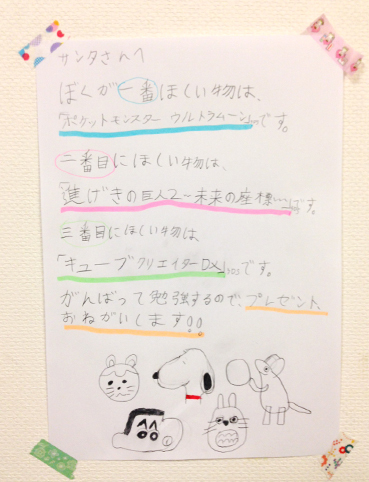 サンタさんへ
ぼくが一番ほしい物は、
「ポケットモンスター ウルトラムーン」です。
二番目にほしい物は、
「進げきの巨人2~未来の座標~」です。
三番目にほしい物は
「キューブクリエイターDX」です。
がんばって勉強するので、プレゼント
おねがいします!!